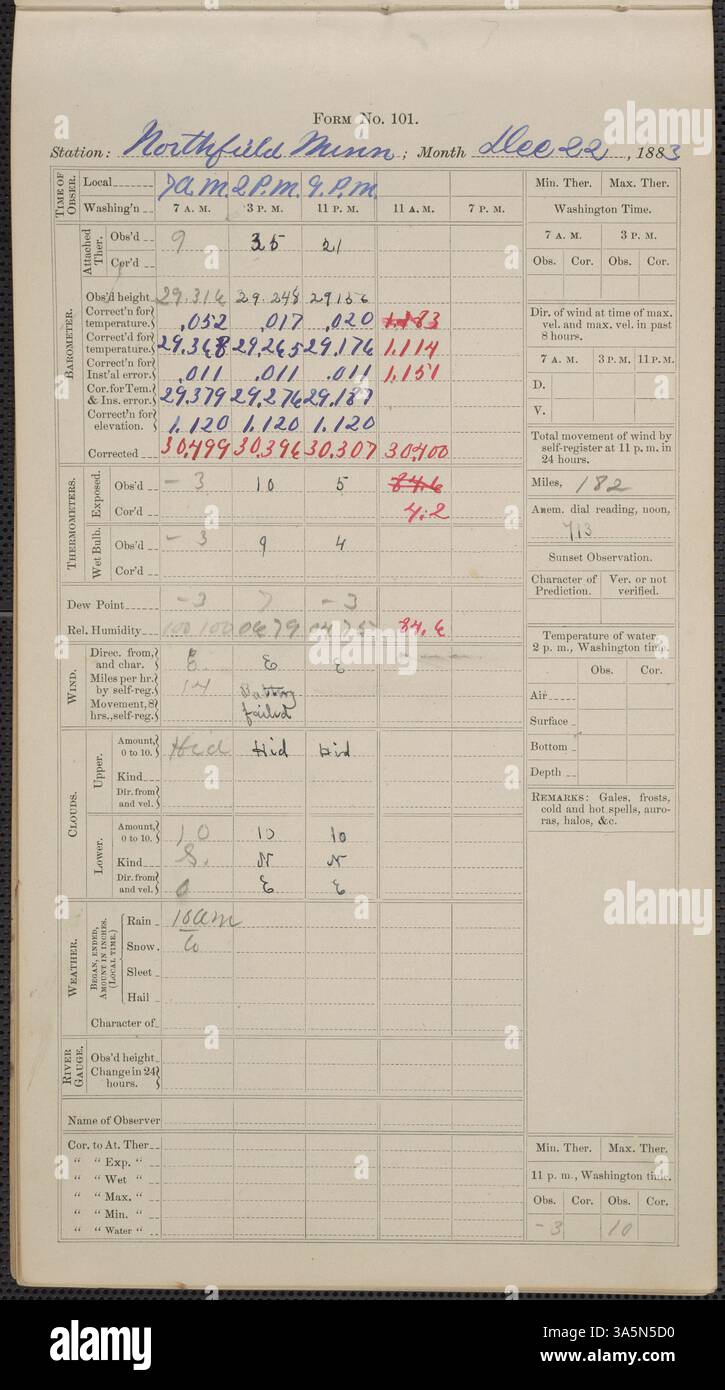 FORM NO. 101.
Station: Northfield Minn; Month Dec 22, 1883
TIME OF OBSER.
Local 7 A.M. 2 P.M. 9 P.M.
Washing'n 7 A. M. 3 P. M. 11 P. M. 11 A. M. 7 P. M.
BAROMETER.
Attached Ther.
Obs'd 9 35 21
Cor'd
Obs'd height 29.316 29.248 29156
Correct'n for temperature. .052 .017 .020 1.183
Correct'd for temperature. 29.368 29.265 29.176 1.114
Correct'n for Inst'al error. .011 .011 .011 1.151
Cor. for Tem. & Ins. error. 29379 29.276 29.187
Correct'n for elevation. 1.120 1.120 1.120
Corrected 30.499 30.396 30.307 30.400
THERMOMETERS.
Exposed.
Obs'd -3 10 5 84.6
Cor'd 4.2
Wet Bulb.
Obs'd -3 9 4
Cor'd
Dew Point -3 7 -3
Rel. Humidity 100 100 06 79 04 75 84.6
WIND.
Direc. from, and char. E. E E
Miles per hr. by self-reg. 14 Battery
Movement, 8 hrs., self-reg. failed
CLOUDS.
Upper.
Amount, 0 to 10. Hid Hid Hid
Kind
Dir. from and vel.
Lower.
Amount, 0 to 10. 10 10 10
Kind S. N N
Dir. from and vel. 0 E E
WEATHER.
BEGAN, ENDED, AMOUNT IN INCHES. (LOCAL TIME.)
Rain 10am
Snow
Sleet
Hail
Character of
RIVER GAUGE.
Obs'd height
Change in 24 hours.
Name of Observer
Cor. to At. Ther
“ “ Exp. “
“ “ Wet “
“ “ Max. “
“ “ Min. “
“ “ Water “
Min. Ther. Max. Ther.
Washington Time.
7 A. M. 3 P. M.
Obs. Cor. Obs. Cor.
Dir. of wind at time of max. vel. and max. vel. in past 8 hours.
7 A. M. 3 P. M. 11 P. M.
D.
V.
Total movement of wind by self-register at 11 p. m. in 24 hours.
Miles, 182
Anem. dial reading, noon,
713
Sunset Observation.
Character of Prediction. Ver. or not verified.
Temperature of water 2 p. m., Washington time.
Obs. Cor.
Air
Surface
Bottom
Depth
REMARKS: Gales, frosts, cold and hot spells, auroras, halos, &c.
Min. Ther. Max. Ther.
11 p. m., Washington time.
Obs. Cor. Obs. Cor.
-3 10
alamy
Image ID: 3A5N5D0
www.alamy.com